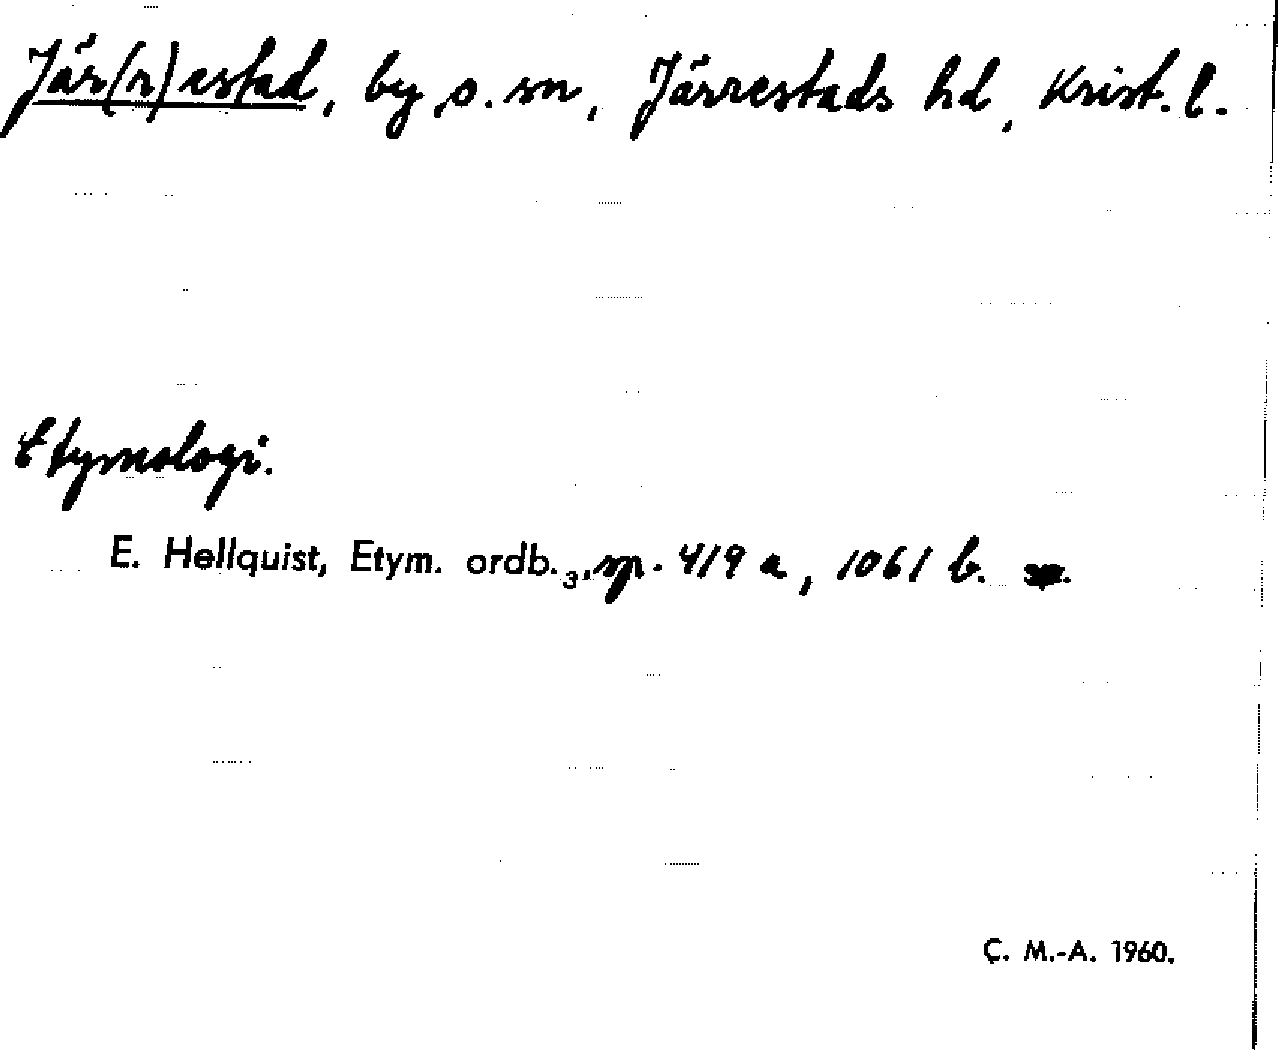 Jär(r)estad, by o. sn, Järrestads hd, Krist. l.
Etymologi.
E. Hellquist, Etym. ordb.₃, sp. 419 a, 1061 b.
C. M.-A. 1960.